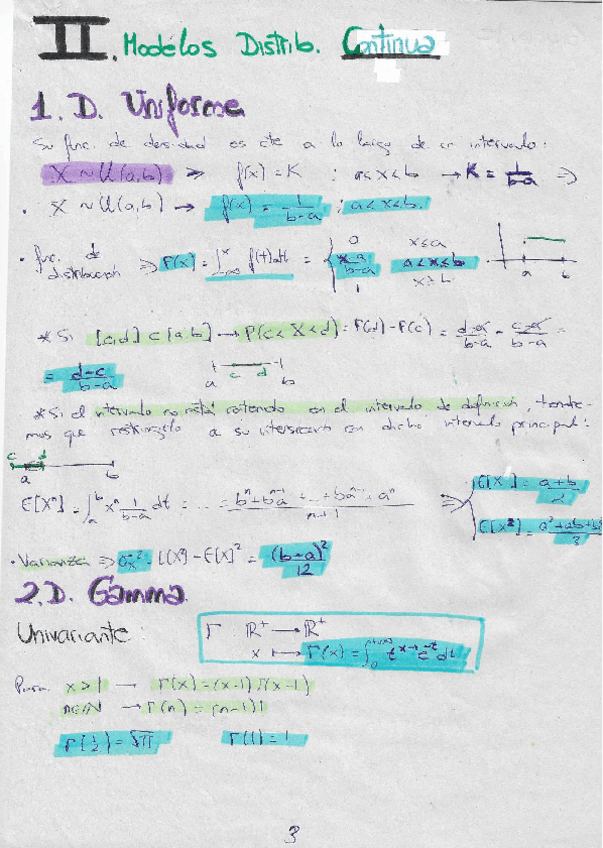 II. Modelos Distrib. Continua
1. D. Uniforme
Su func. de densidad es cte a lo largo de un intervalo:
X ~ U(a,b) ⇒ f(x) = K ; a<x<b → K = 1/(b-a) ⇒
· X ~ U(a,b) → f(x) = 1/(b-a) ; a<x<b.
· func. de distribución ⇒ F(x) = ∫_{-∞}^{x} f(t)dt = { 0 x≤a
(x-a)/(b-a) a<x≤b
1 x>b
a b
* Si [c,d] ⊂ [a,b] → P(c<X<d) = F(d) - F(c) = (d-a)/(b-a) - (c-a)/(b-a) =
= (d-c)/(b-a)
a c d b
* Si el intervalo no está contenido en el intervalo de definición, tendre-
mos que restringirlo a su intersección con dicho intervalo principal:
c d
a b
E[Xⁿ] = ∫_a^b xⁿ 1/(b-a) dt = ... = (bⁿ+bⁿ⁻¹a+...+baⁿ⁻¹+aⁿ)/(n+1) ⇒ { E[X] = (a+b)/2
E[X²] = (a²+ab+b²)/3
· Varianza ⇒ σx² = E[X²] - E[X]² = (b-a)²/12
2. D. Gamma
Univariante:
Γ ℝ⁺ → ℝ⁺
x ↦ Γ(x) = ∫_0^{+∞} t^{x-1} e^{-t} dt
Para x>1 → Γ(x) = (x-1) Γ(x-1)
n∈ℕ → Γ(n) = (n-1)!
Γ(1/2) = √π Γ(1) = 1
3